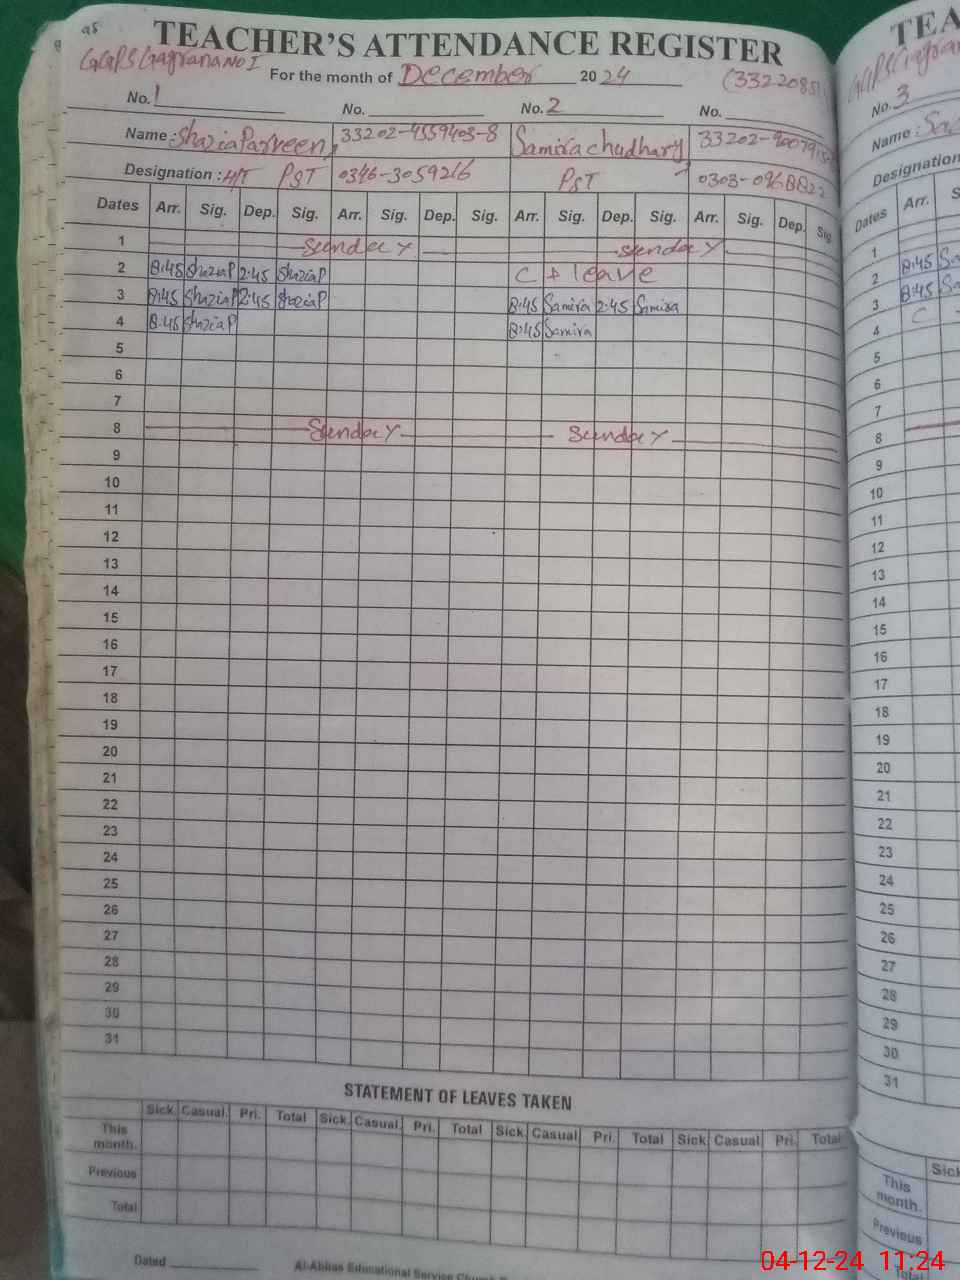 TEACHER'S ATTENDANCE REGISTER
GGPS Gagrana No I
For the month of December 2024 (33220851
No. 1 No. No. 2 No.
Name: Shazia Parveen 33202-4559403-8 Samira chudhary
Designation: H/T PST 0346-3059216 PST
Dates Arr. Sig. Dep. Sig. Arr. Sig. Dep. Sig. Arr. Sig. Dep. Sig. Arr. Sig. Dep. Sig.
1 Sunday Sunday
2 8:45 Shazia P 2:45 Shazia P C + leave
3 8:45 Shazia P 2:45 Shazia P 8:45 Samira 2:45 Samira
4 8:45 Shazia P 8:45 Samira
5
6
7
8 Sunday Sunday
9
10
11
12
13
14
15
16
17
18
19
20
21
22
23
24
25
26
27
28
29
30
31
STATEMENT OF LEAVES TAKEN
Sick. Casual. Pri. Total Sick. Casual. Pri. Total Sick. Casual. Pri. Total Sick. Casual. Pri. Total
This month.
Previous
Total
Dated Al-Abbas Educational Service
TEA
No. 3
Name:
Designation
Dates Arr.
1
2 8:45
3 8:45
4 C
5
6
7
8
9
10
11
12
13
14
15
16
17
18
19
20
21
22
23
24
25
26
27
28
29
30
31
Sick
This month.
Previous
Total
04-12-24 11:24